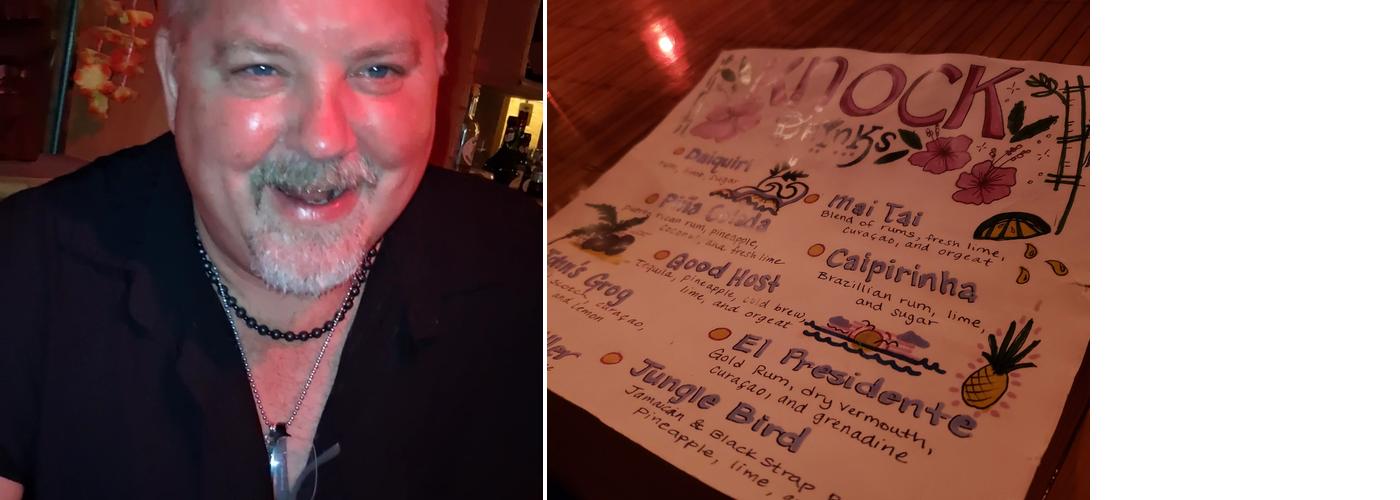 KNOCK
Drinks
Daiquiri
rum, lime, sugar
Piña Colada
puerto rican rum, pineapple,
coconut, and fresh lime
Good Host
Tequila, pineapple, cold brew,
lime, and orgeat
Grog
Scotch, curaçao,
and lemon
Mai Tai
Blend of rums, fresh lime,
curaçao, and orgeat
Caipirinha
Brazillian rum, lime,
and sugar
El Presidente
Gold Rum, dry vermouth,
curaçao, and grenadine
Jungle Bird
Jamaican & Black Strap
Pineapple, lime,